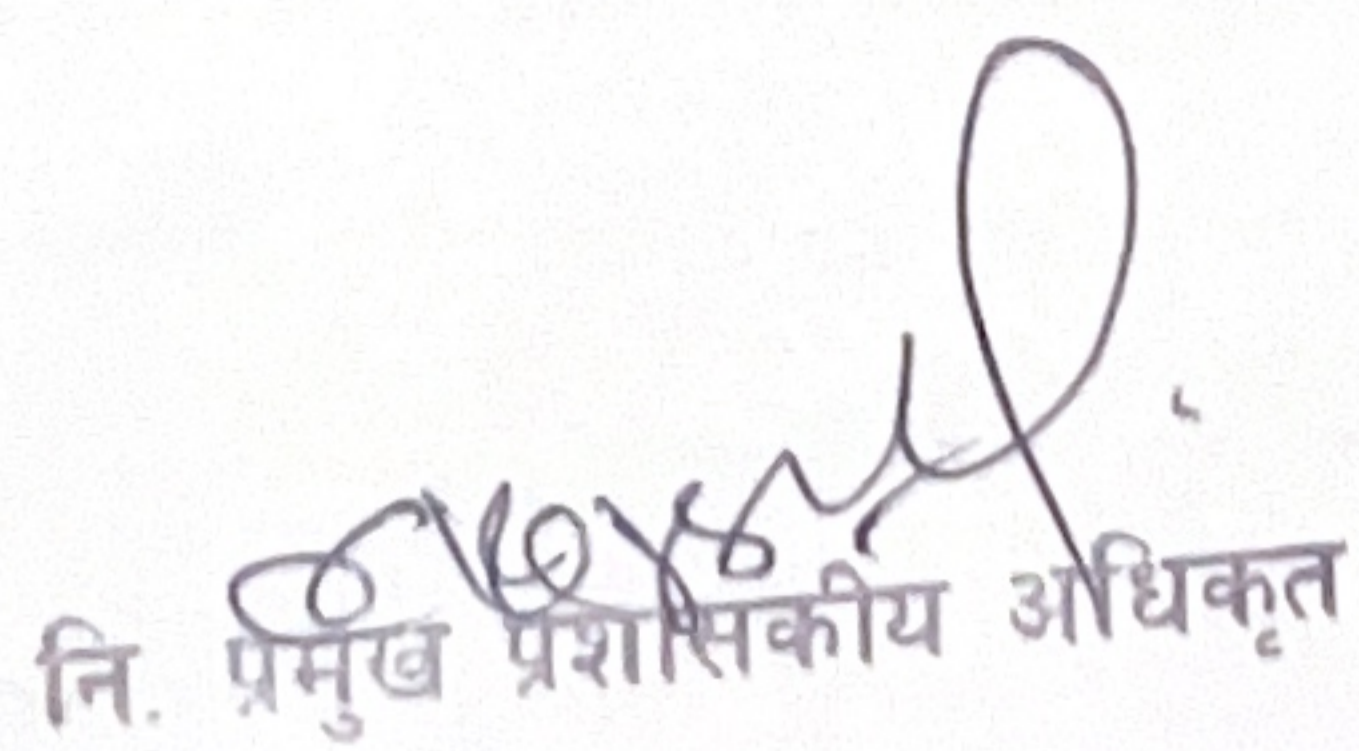 नि. प्रमुख प्रशासकीय अधिकृत